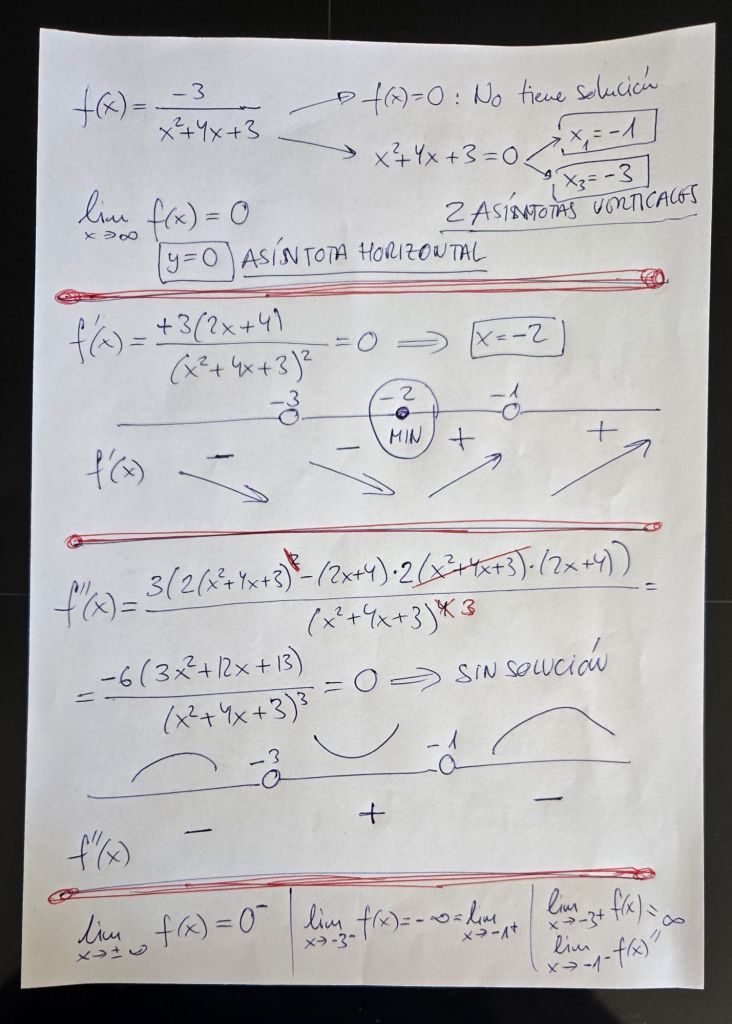 f(x) = -3 / (x²+4x+3) → f(x)=0 : No tiene solución
→ x²+4x+3=0 → x₁=-1
→ x₃=-3
lim x→∞ f(x) = 0
2 ASÍNTOTAS VERTICALES
y=0 ASÍNTOTA HORIZONTAL
f'(x) = +3(2x+4) / (x²+4x+3)² = 0 ⟹ x=-2
-3 -2 -1
MIN
- - + +
f'(x)
f''(x) = 3(2(x²+4x+3)² - (2x+4)·2(x²+4x+3)·(2x+4)) / (x²+4x+3)⁴ 3 =
= -6(3x²+12x+13) / (x²+4x+3)³ = 0 ⟹ SIN SOLUCIÓN
-3 -1
- + -
f''(x)
lim x→±∞ f(x) = 0⁻ | lim x→-3⁻ f(x) = -∞ = lim x→-1⁺ | lim x→-3⁺ f(x) = ∞
lim x→-1⁻ f(x) "